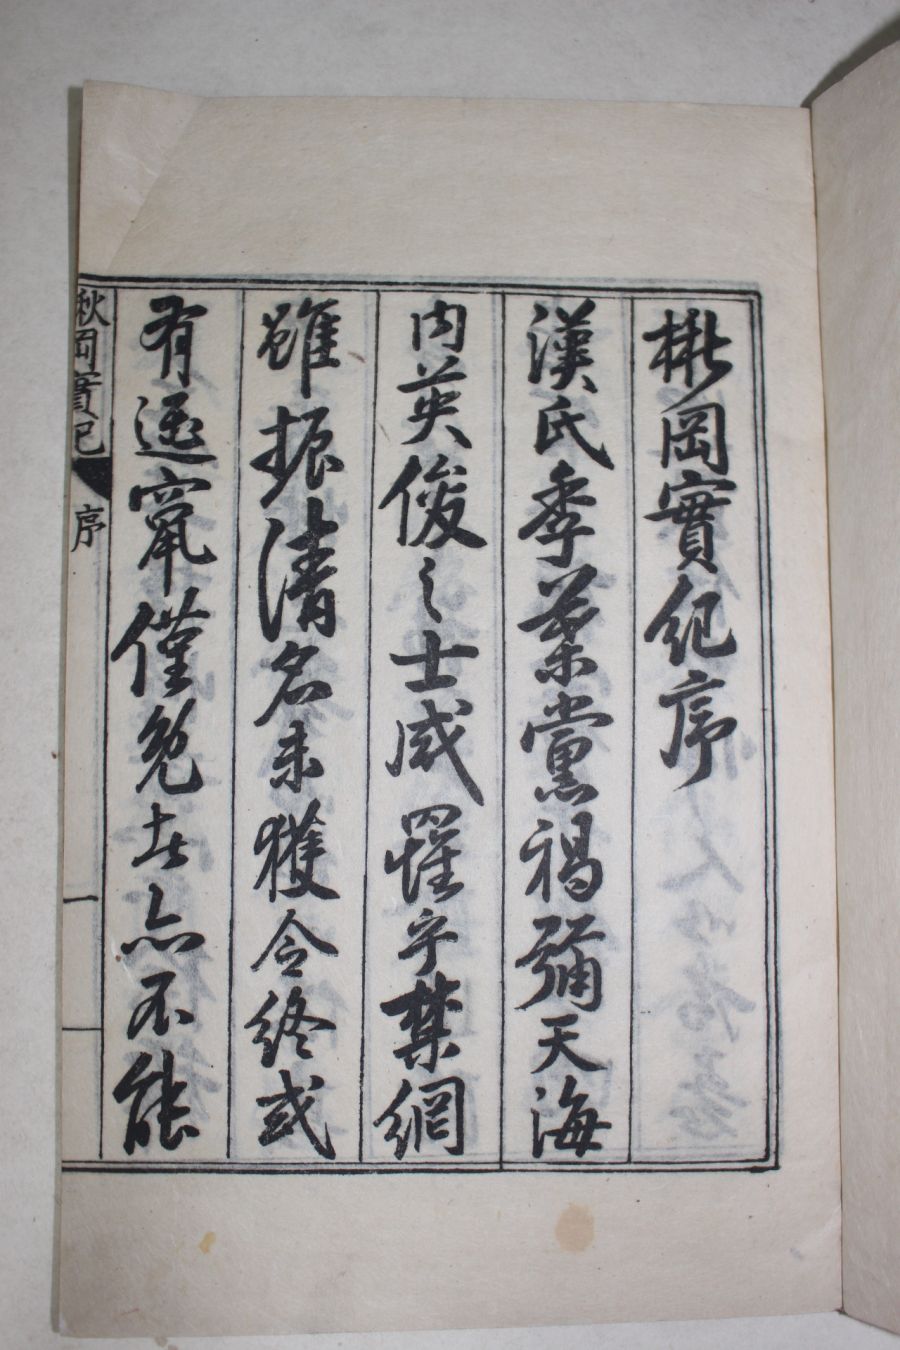 楸岡實紀序
漢氏季葉黨禍彌天海
內英俊之士咸罹乎禁網
雖振清名未獲令終或
有遜竄僅免者亦不能
楸岡實記
序
一